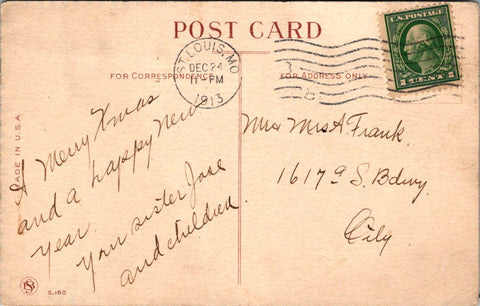 POST CARD
ST. LOUIS, MO.
DEC 24
11 - PM
1913
U.S. POSTAGE
1 CENT 1
FOR CORRESPONDENCE
FOR ADDRESS ONLY
MADE IN U.S.A.
A Merry Xmas
and a happy New
year.
your sister
and children
Mr & Mrs A Frank.
1617a S. Bdwy.
City
S-160